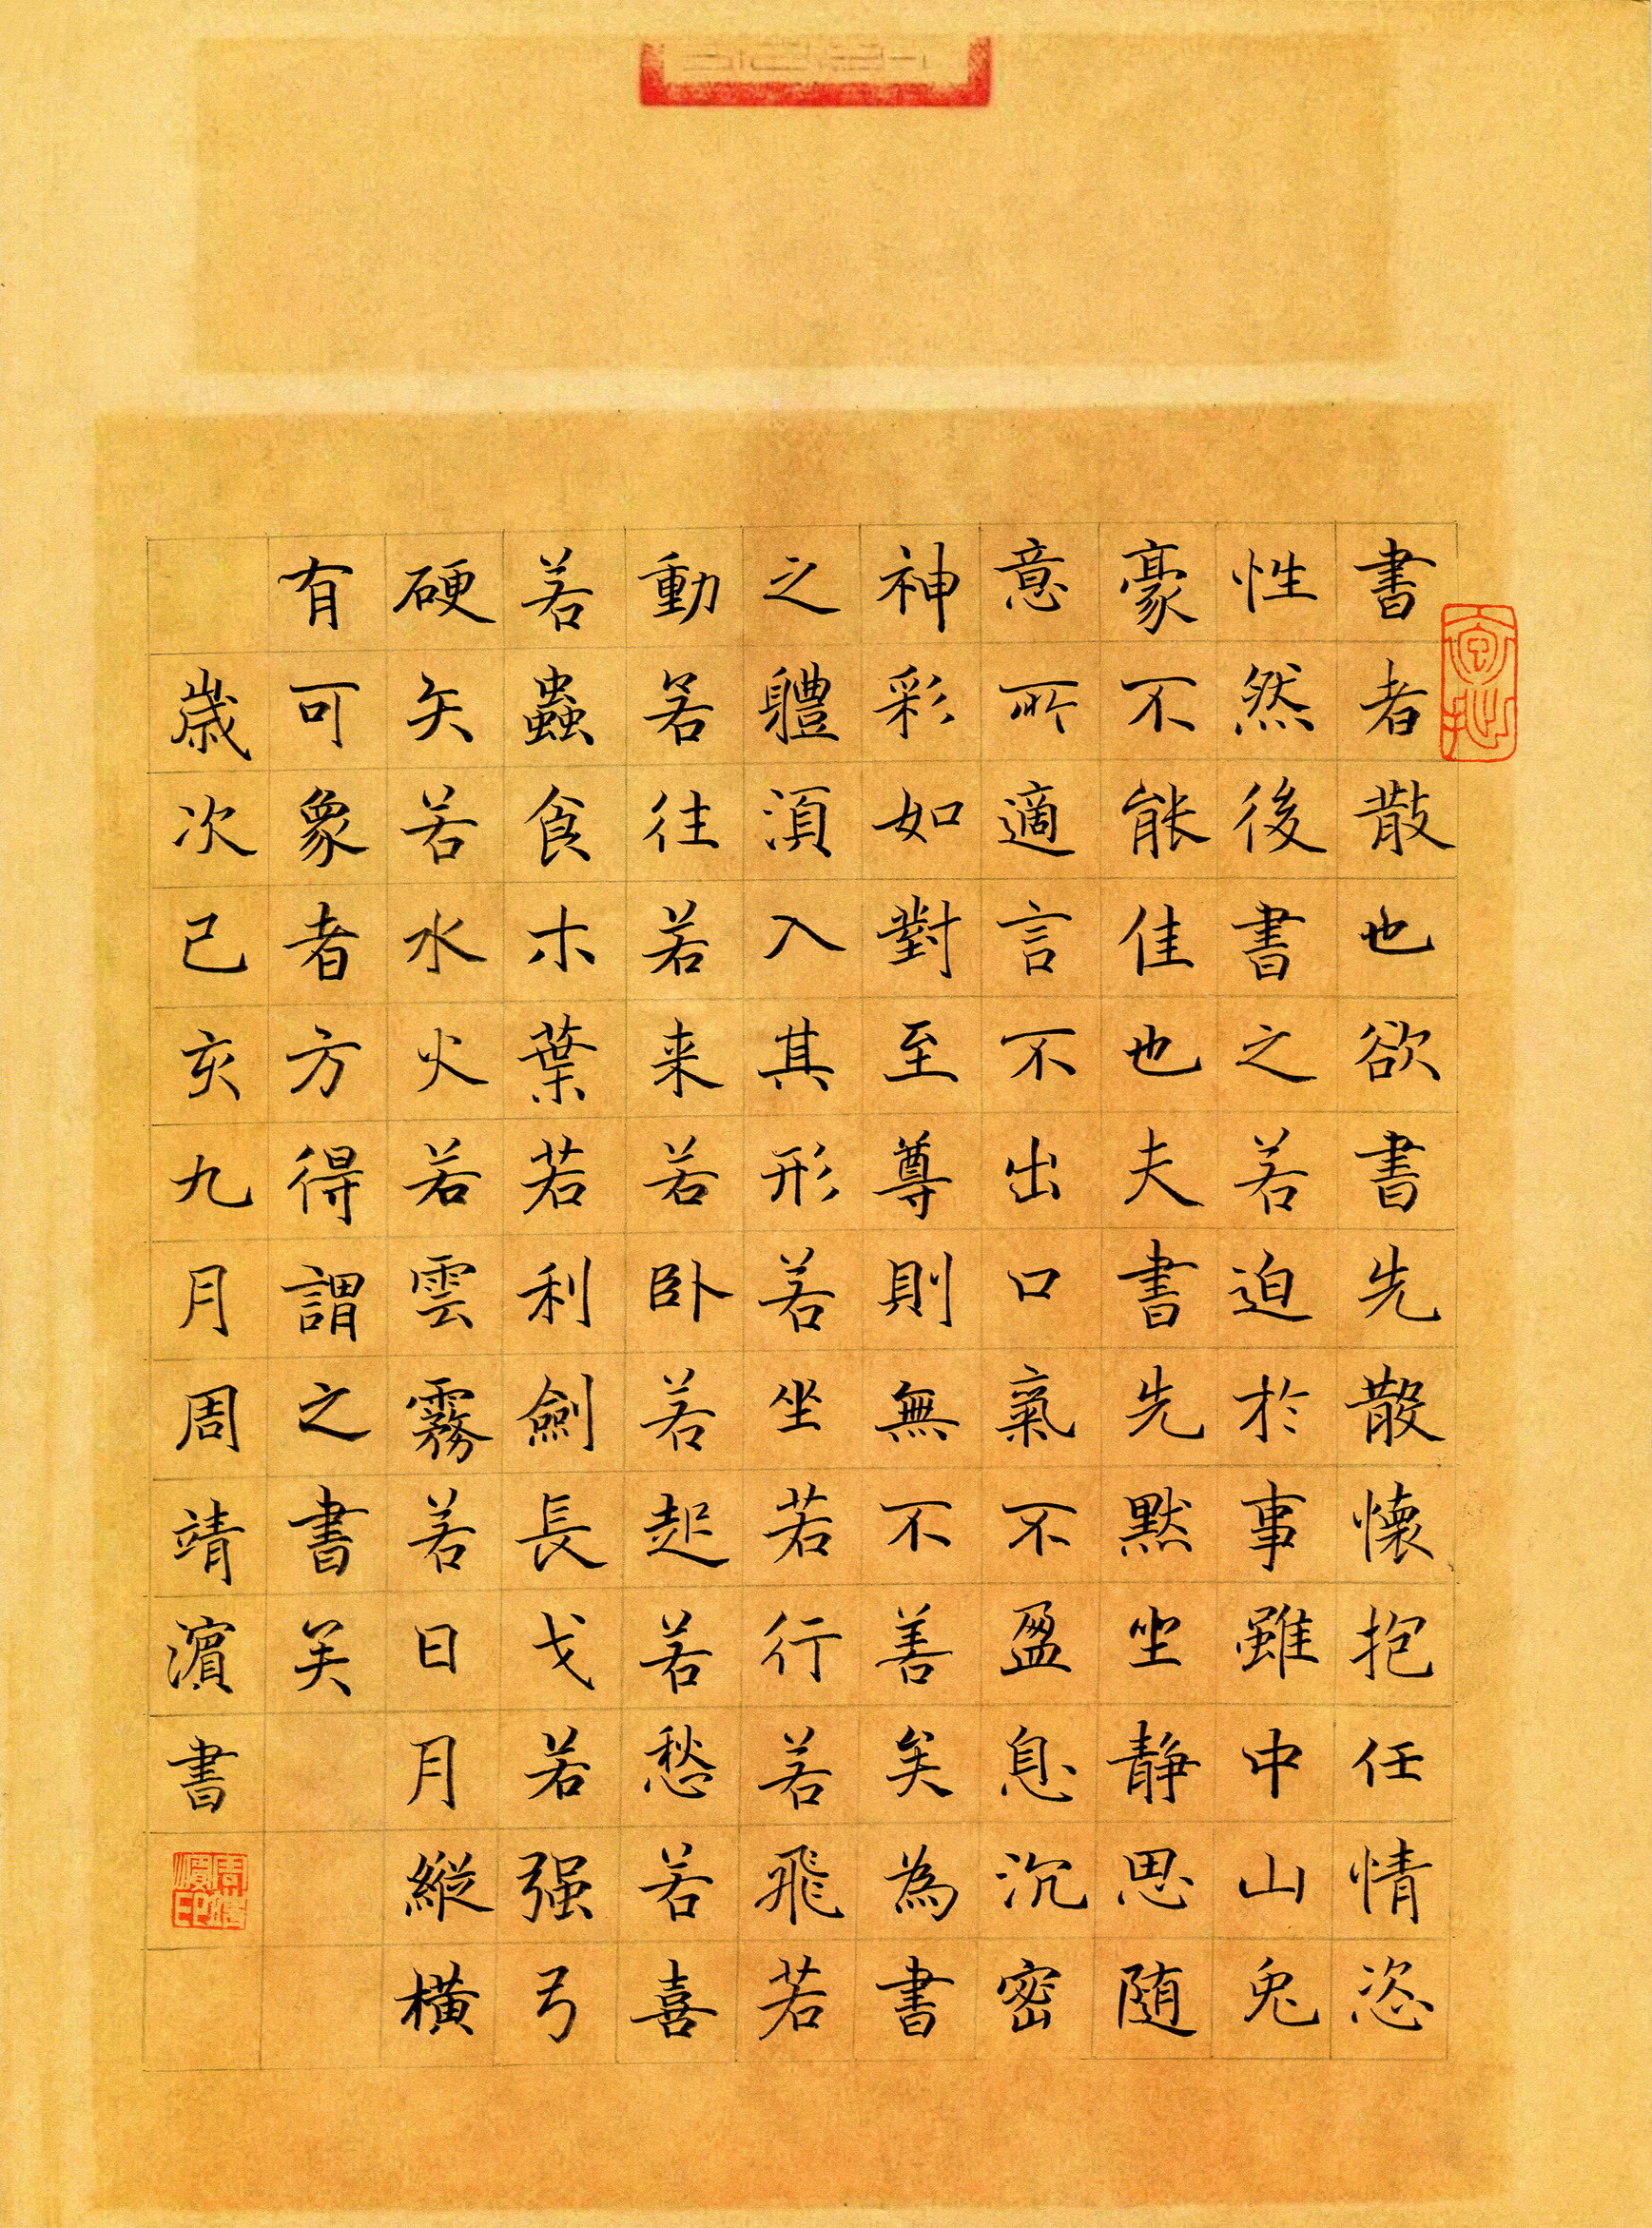 書者散也欲書先散懷抱任情恣
性然後書之若迫於事雖中山兔
豪不能佳也夫書先默坐静思随
意所適言不出口氣不盈息沉密
神彩如對至尊則無不善矣為書
之軆須入其形若坐若行若飛若
動若往若来若卧若起若愁若喜
若蟲食木葉若利劍長戈若强弓
硬矢若水火若雲霧若日月縱橫
有可象者方得謂之書矣
歲次己亥九月周靖濵書